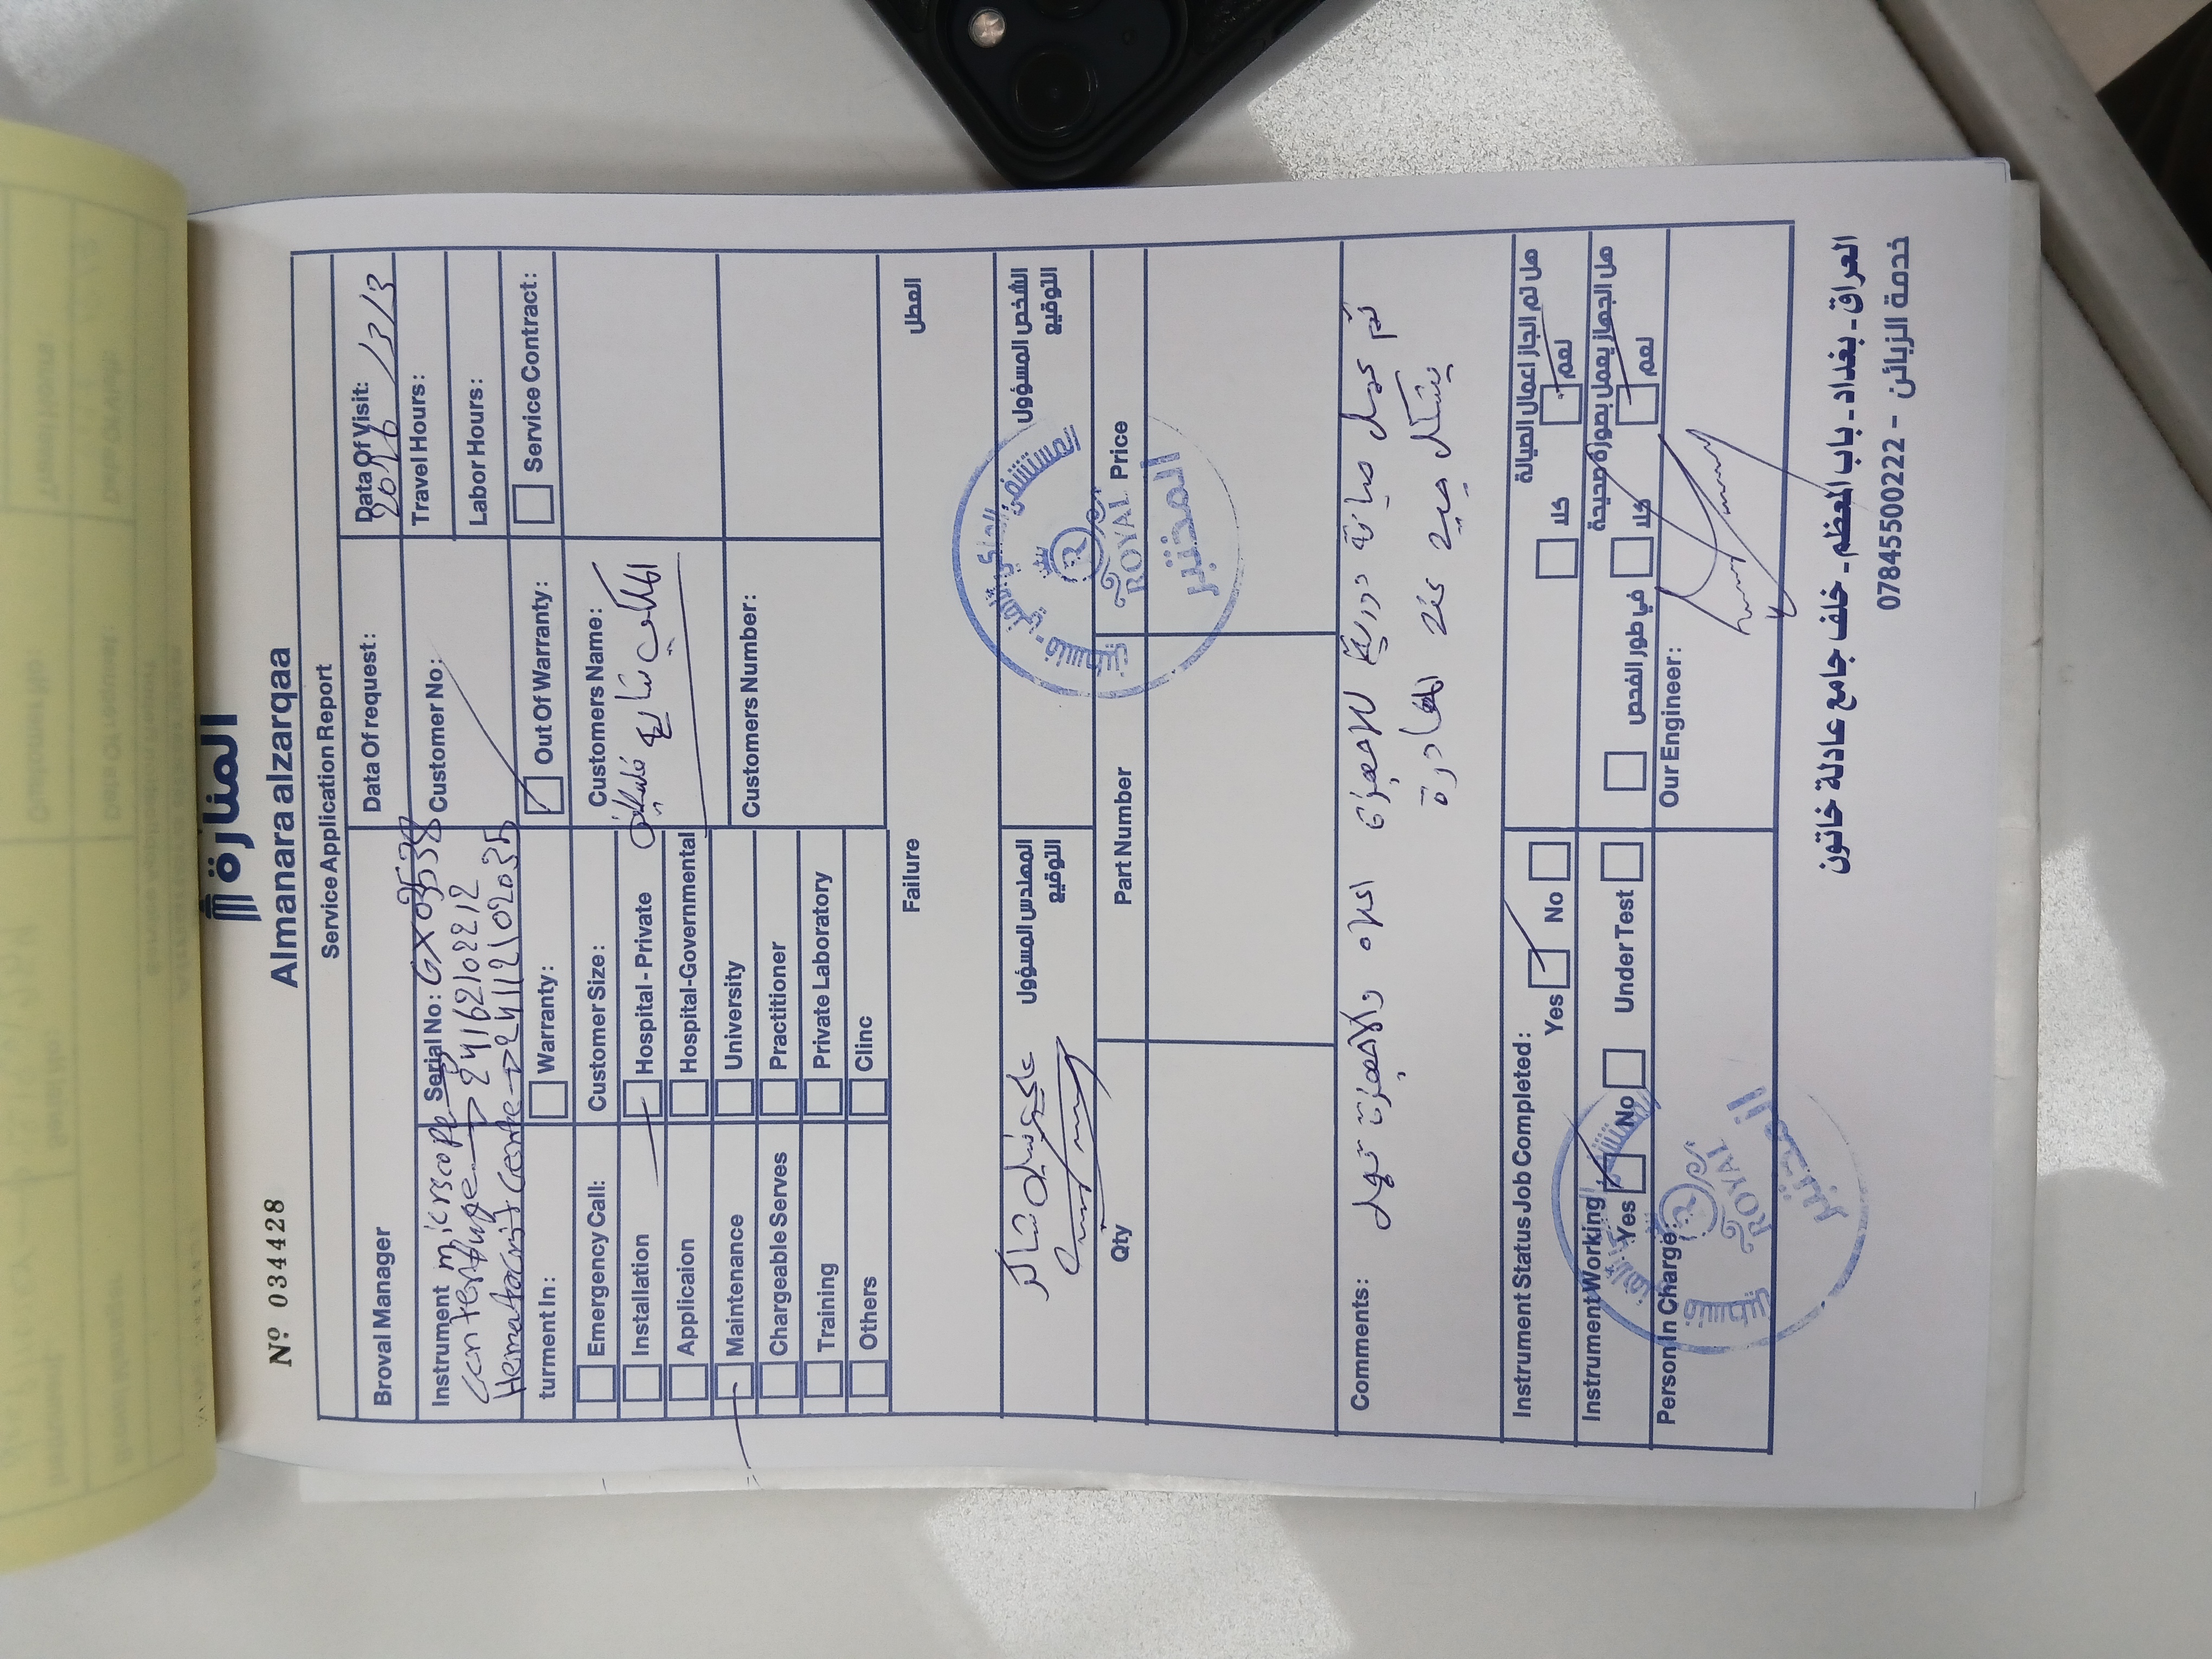 المنارة
Nº 034428
Almanara alzarqaa
Service Application Report
Broval Manager
Data Of request:
Data Of Visit:
2026/3/3
Instrument microscope
Serial No: GX03538
Customer No:
Travel Hours:
Labor Hours:
centerfuge → 24162102212
Hematocrit Cente → 24112102035
turment In:
Warranty:
Out Of Warranty:
Service Contract:
Emergency Call:
Customer Size:
Customers Name:
Installation
Hospital - Private
Applicaion
Hospital-Governmental
Maintenance
University
Customers Number:
Chargeable Serves
Practitioner
Training
Private Laboratory
Others
Clinc
Failure
العطل
المهندس المسؤول
التوقيع
الشخص المسؤول
التوقيع
ROYAL
المختبر
Qty
Part Number
Price
Comments:
تم عمل صيانة دورية للاجهزة اعلاه والاجهزة تعمل
بشكل جيد عند المغادرة
Instrument Status Job Completed:
Yes
No
هل تم انجاز اعمال الصيانة
نعم
كلا
Instrument Working
Yes
No
Under Test
هل الجهاز يعمل بصورة صحيحة
نعم
كلا
في طور الفحص
Person In Charge:
Our Engineer:
ROYAL
المختبر
العراق - بغداد - باب المعظم - خلف جامع عادلة خاتون
خدمة الزبائن - 07845500222